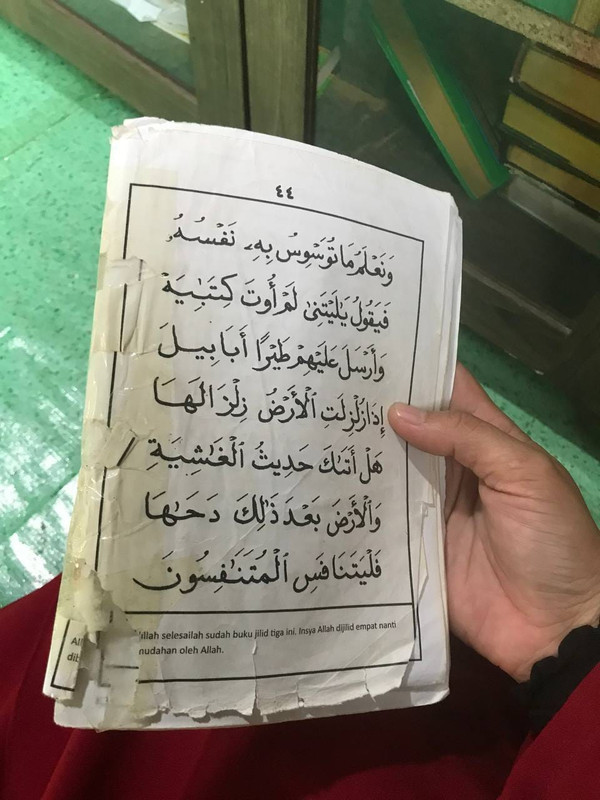 ٤٤
وَنَعْلَمُ مَا تُوَسْوِسُ بِهِۦ نَفْسُهُۥ
فَيَقُولُ يَٰلَيْتَنِى لَمْ أُوتَ كِتَٰبِيَهْ
وَأَرْسَلَ عَلَيْهِمْ طَيْرًا أَبَابِيلَ
إِذَا زُلْزِلَتِ ٱلْأَرْضُ زِلْزَالَهَا
هَلْ أَتَىٰكَ حَدِيثُ ٱلْغَٰشِيَةِ
وَٱلْأَرْضَ بَعْدَ ذَٰلِكَ دَحَىٰهَا
فَلْيَتَنَافَسِ ٱلْمُتَنَٰفِسُونَ
selesailah sudah buku jilid tiga ini. Insya Allah dijilid empat nanti
mudahan oleh Allah.